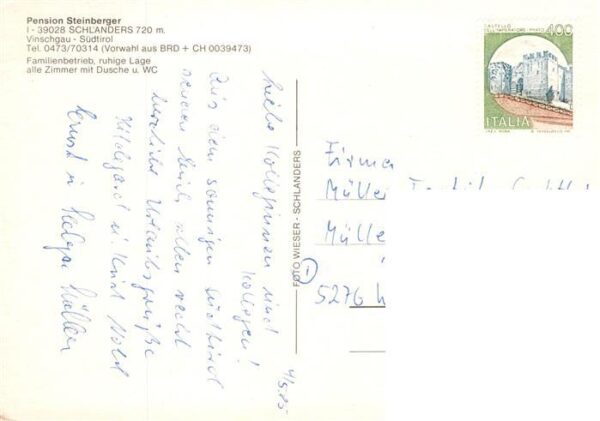 Pension Steinberger
I - 39028 SCHLANDERS 720 m.
Vinschgau - Südtirol
Tel. 0473/70314 (Vorwahl aus BRD + CH 0039473)
Familienbetrieb, ruhige Lage
alle Zimmer mit Dusche u. WC
CASTELLO
DELL'IMPERATORE - PRATO
400
ITALIA
4/5.85
Liebe Kolleginnen und
Kollegen!
Aus dem sonnigen Südtirol
senden Euch allen recht
herzliche Urlaubsgrüße
Hildegard u. Kurt
u. Helga Müller
FOTO WIESER - SCHLANDERS
Firma
Mülle
Mülle
5276